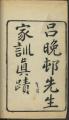 呂晚邨先生
家訓真蹟